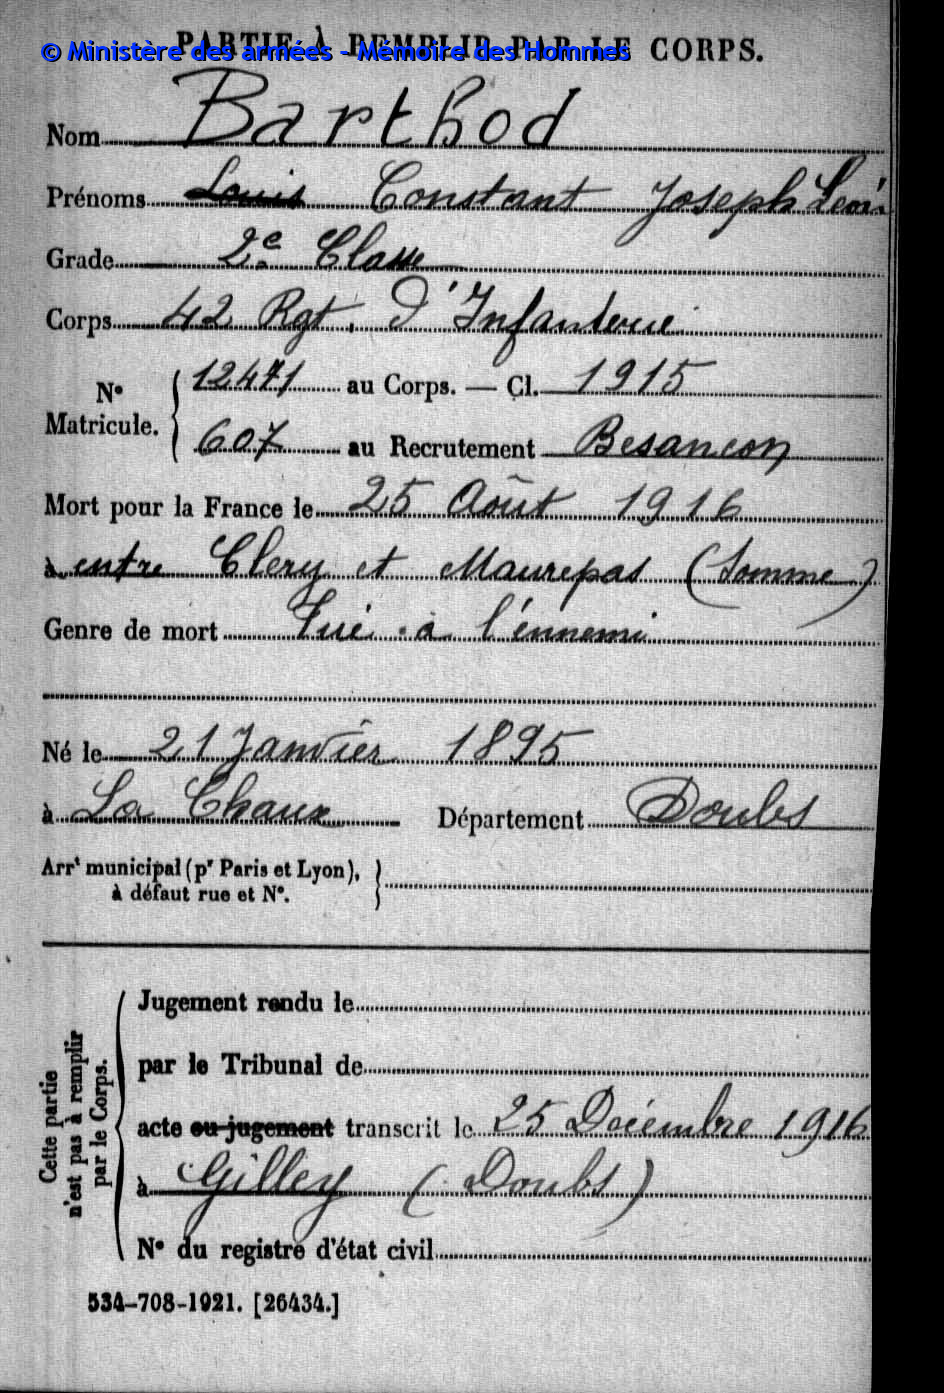 PARTIE À REMPLIR PAR LE CORPS.
© Ministère des armées - Mémoire des Hommes
Nom Barthod
Prénoms Louis Constant Joseph
Grade 2e Classe
Corps 42 Rgt. d'Infanterie
N° Matricule. 12471 au Corps. — Cl. 1915
607 au Recrutement Besancon
Mort pour la France le 25 Août 1916
à entre Clery et Maurepas (Somme)
Genre de mort Tué à l'ennemi
Né le 21 Janvier 1895
à La Chaux Département Doubs
Arrt municipal (pr Paris et Lyon),
à défaut rue et N°.
Cette partie
n'est pas à remplir
par le Corps.
Jugement rendu le
par le Tribunal de
acte ou jugement transcrit le 25 Décembre 1916
à Gilley (Doubs)
N° du registre d'état civil
534-708-1921. [26434.]